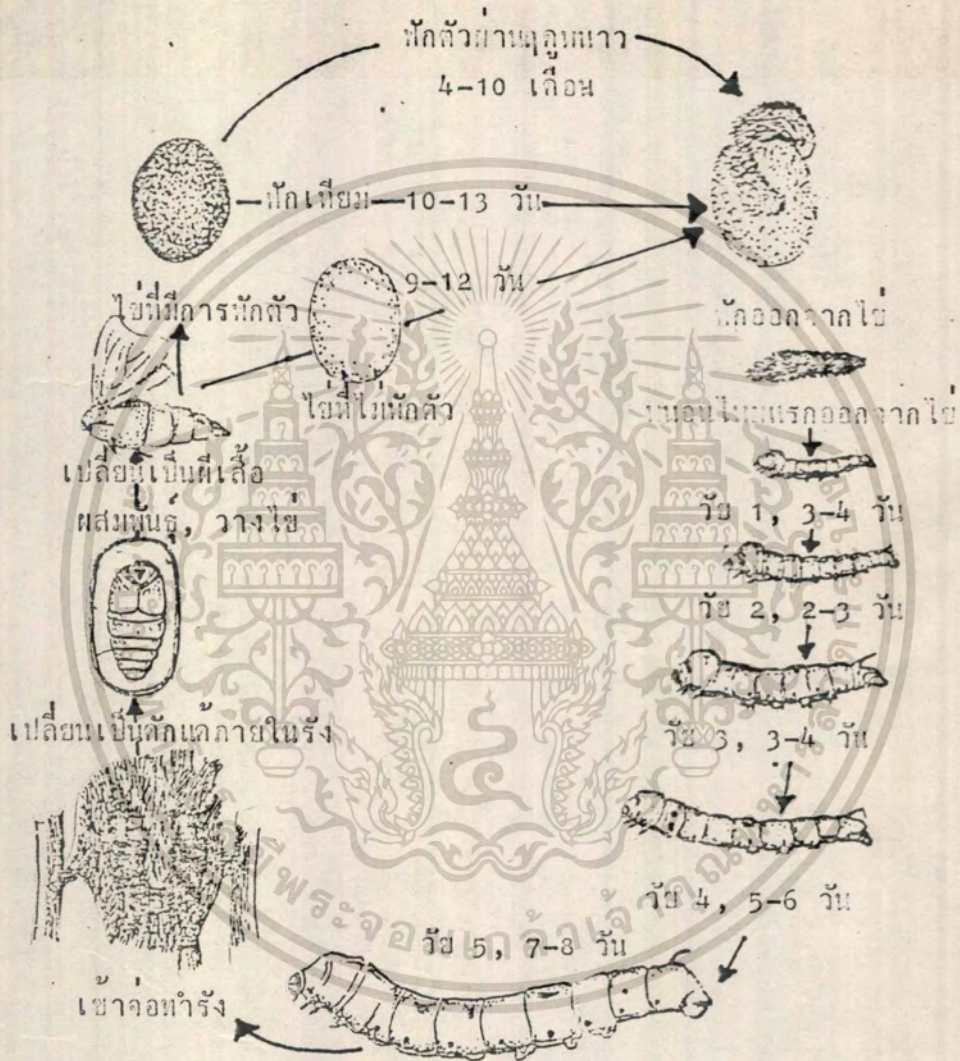 พักตัวผ่านฤดูหนาว
4-10 เดือน
ฟักเทียม 10-13 วัน
9-12 วัน
ไข่ที่มีการพักตัว
ไข่ที่ไม่พักตัว
ฟักออกจากไข่
หนอนไหมแรกออกจากไข่
วัย 1, 3-4 วัน
วัย 2, 2-3 วัน
วัย 3, 3-4 วัน
วัย 4, 5-6 วัน
วัย 5, 7-8 วัน
เข้าจ่อทำรัง
เปลี่ยนเป็นดักแด้ภายในรัง
เปลี่ยนเป็นผีเสื้อ
ผสมพันธุ์, วางไข่